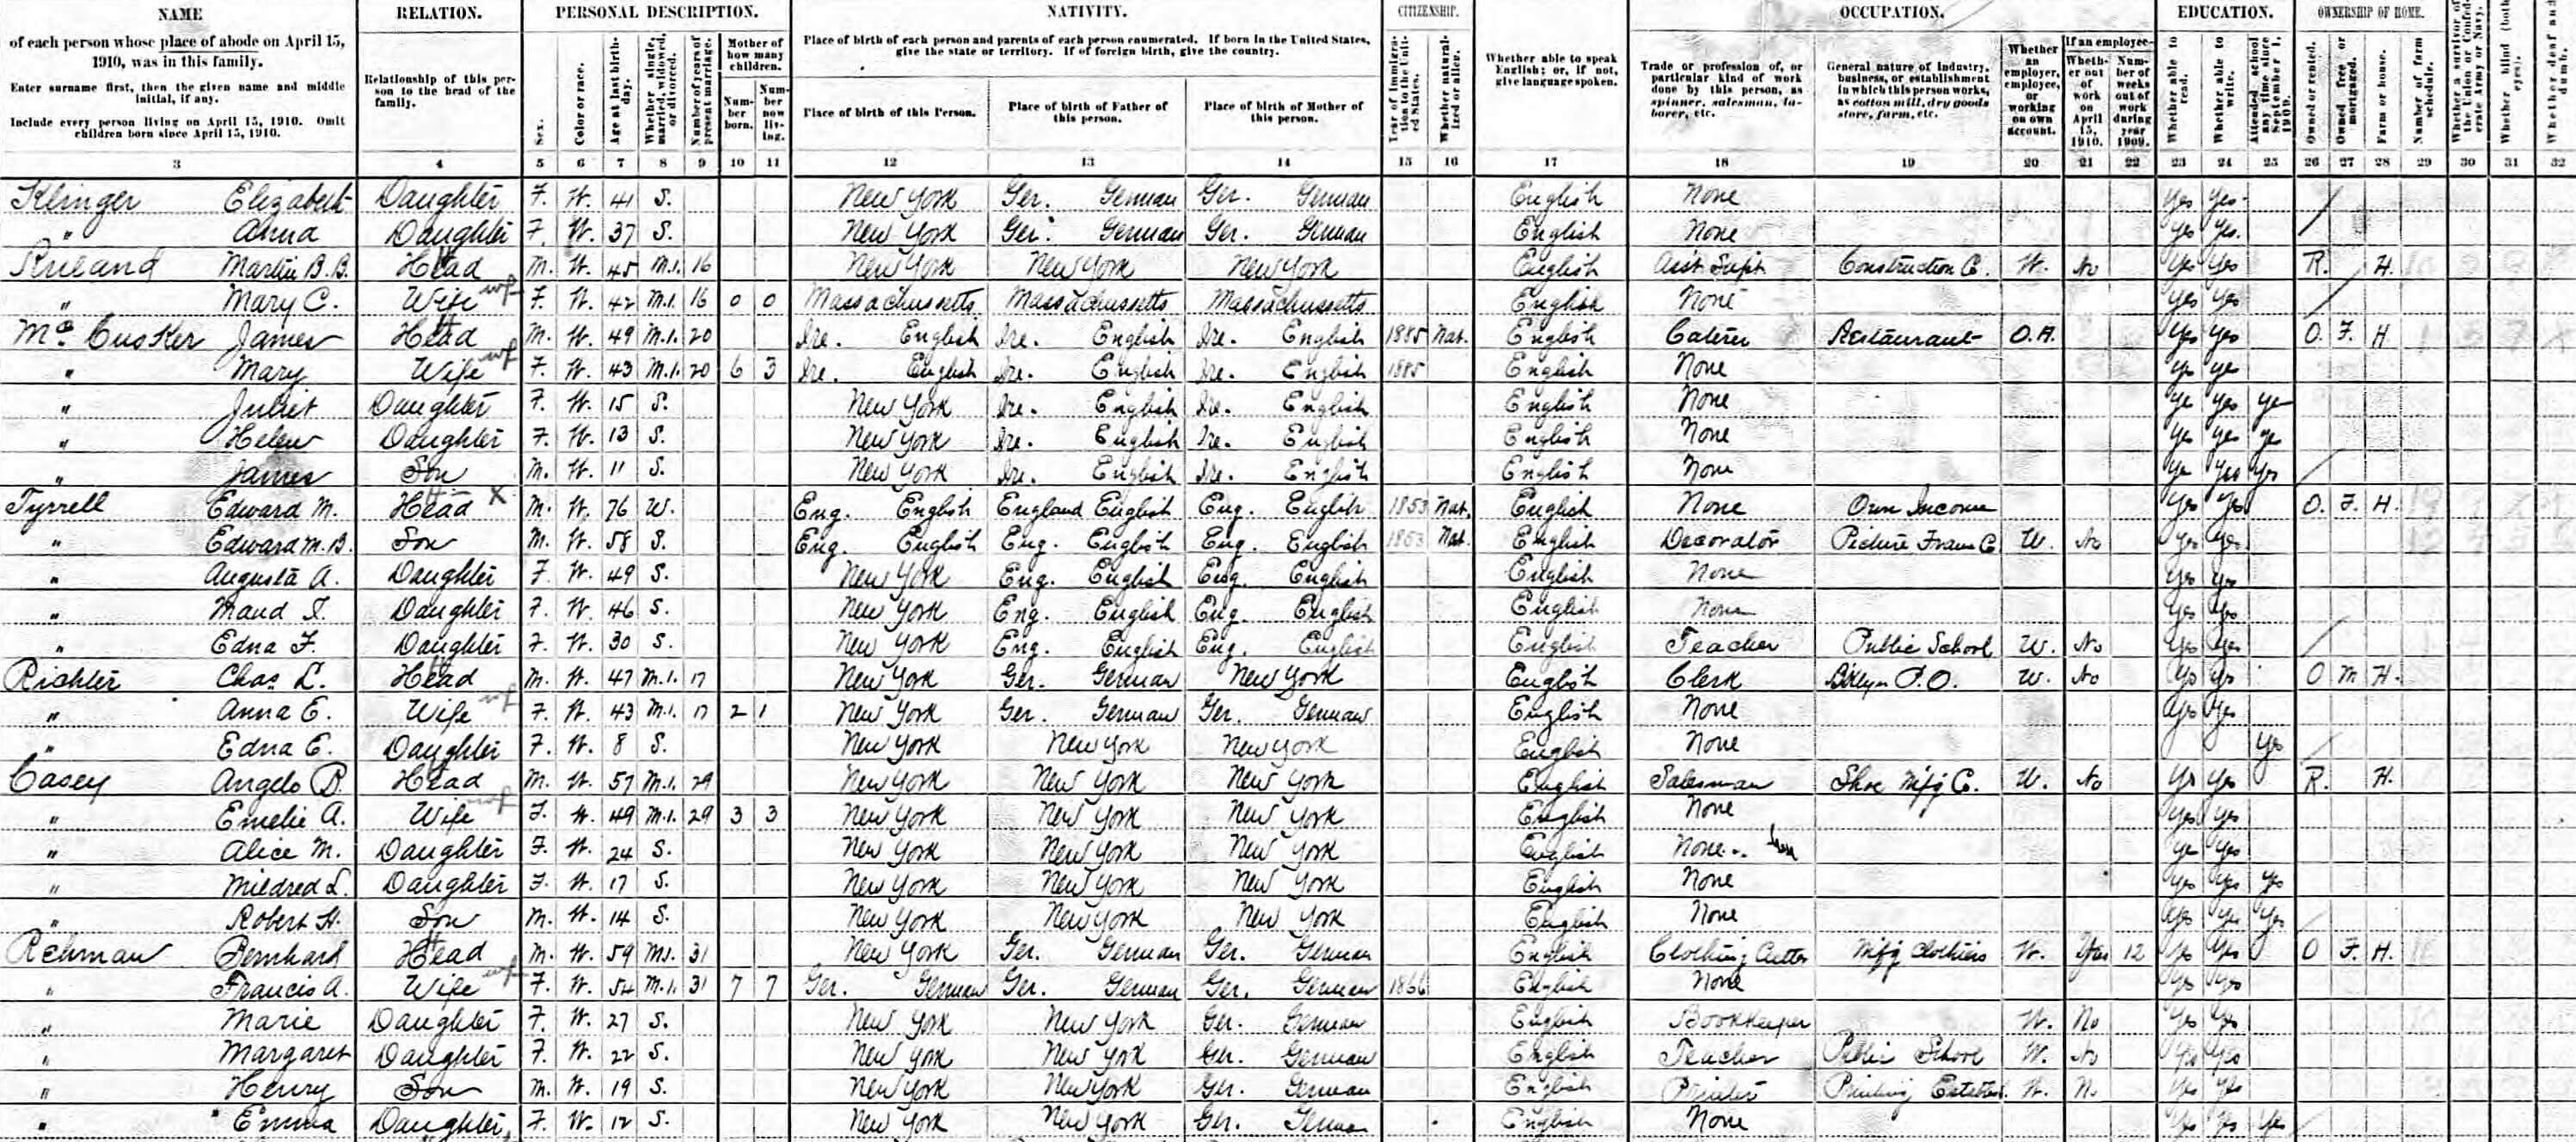 NAME
of each person whose place of abode on April 15, 1910, was in this family.
Enter surname first, then the given name and middle initial, if any.
Include every person living on April 15, 1910. Omit children born since April 15, 1910.
RELATION.
Relationship of this person to the head of the family.
PERSONAL DESCRIPTION.
Sex.
Color or race.
Age at last birthday.
Whether single, married, widowed, or divorced.
Number of years of present marriage.
Mother of how many children.
Number born.
Number now living.
NATIVITY.
Place of birth of each person and parents of each person enumerated. If born in the United States, give the state or territory. If of foreign birth, give the country.
Place of birth of this Person.
Place of birth of Father of this person.
Place of birth of Mother of this person.
CITIZENSHIP.
Year of immigration to the United States.
Whether naturalized or alien.
Whether able to speak English; or, if not, give language spoken.
OCCUPATION.
Trade or profession of, or particular kind of work done by this person, as spinner, salesman, laborer, etc.
General nature of industry, business, or establishment in which this person works, as cotton mill, dry goods store, farm, etc.
Whether an employer, employee, or working on own account.
If an employee—
Whether out of work on April 15, 1910.
Number of weeks out of work during year 1909.
EDUCATION.
Whether able to read.
Whether able to write.
Attended school any time since September 1, 1909.
OWNERSHIP OF HOME.
Owned or rented.
Owned free or mortgaged.
Farm or house.
Number of farm schedule.
Whether a survivor of the Union or Confederate Army or Navy.
Whether blind (both eyes).
Whether deaf and dumb.
3 4 5 6 7 8 9 10 11 12 13 14 15 16 17 18 19 20 21 22 23 24 25 26 27 28 29 30 31 32
Klinger Elizabeth Daughter F. W. 41 S. New York Ger. German Ger. German English None Yes Yes
" Anna Daughter F. W. 37 S. New York Ger. German Ger. German English None Yes Yes.
Ruland Martin B. B. Head M. W. 45 M.1. 16 New York New York New York English Asst. Supt. Construction C. W. No Yes Yes R. H.
" Mary C. Wife F. W. 42 M.1. 16 0 0 Massachussetts Massachussetts Massachussetts English None Yes Yes
McCusker James Head M. W. 49 M.1. 20 Ire. English Ire. English Ire. English 1885 Nat. English Caterer Restaurant O.A. Yes Yes O. F. H
" Mary Wife F. W. 43 M.1. 20 6 3 Ire. English Ire. English Ire. English 1885 English None Ye Yes
" Juliet Daughter F. W. 15 S. New York Ire. English Ire. English English None Ye Yes Ye
" Helen Daughter F. W. 13 S. New York Ire. English Ire. English English None Yes Yes Ye
" James Son M. W. 11 S. New York Ire. English Ire. English English None Ye Yes Yes
Tyrrell Edward M. Head X M. W. 76 W. Eng. English England English Eng. English 1853 Nat. English None Own Income Yes Yes O. F. H.
" Edward M. B. Son M. W. 58 S. Eng. English Eng. English Eng. English 1853 Nat. English Decorator Picture Frame C W. No Yes Yes
" Augusta A. Daughter F. W. 49 S. New York Eng. English Eng. English English None Yes Yes
" Maud I. Daughter F. W. 46 S. New York Eng. English Eng. English English None Yes Yes
" Edna F. Daughter F. W. 30 S. New York Eng. English Eng. English English Teacher Public School W. No Yes Yes
Richter Chas. L. Head M. W. 47 M.1. 17 New York Ger. German New York English Clerk Bklyn P.O. W. No Yes Yes O M H.
" Anna E. Wife F. W. 43 M.1. 17 2 1 New York Ger. German Ger. German English None Yes Yes
" Edna E. Daughter F. W. 8 S. New York New York New York English None Yes
Casey Angelo B. Head M. W. 57 M.1. 29 New York New York New York English Salesman Shoe Mfg C. W. No Yes Yes R. H.
" Emelie A. Wife F. W. 49 M.1. 29 3 3 New York New York New York English None Yes Yes
" Alice M. Daughter F. W. 24 S. New York New York New York English None Ye Yes
" Mildred L. Daughter F. W. 17 S. New York New York New York English None Yes Yes Yes
" Robert H. Son M. W. 14 S. New York New York New York English None Yes Yes Yes
Rehman Bernhard Head M. W. 59 M.1. 31 New York Ger. German Ger. German English Clothing Cutter Mfg Clothiers W. Yes 12 Yes Yes O F. H.
" Francis A. Wife F. W. 54 M.1. 31 7 7 Ger. German Ger. German Ger. German 1866 English None Yes Yes
" Marie Daughter F. W. 27 S. New York New York Ger. German English Bookkeeper W. No Yes Yes
" Margaret Daughter F. W. 22 S. New York New York Ger. German English Teacher Public School W. No Yes Yes
" Henry Son M. W. 19 S. New York New York Ger. German English Printer Printing W. N. Yes Yes
" Emma Daughter F. W. 12 S. New York New York Ger. German English None Yes Yes Yes